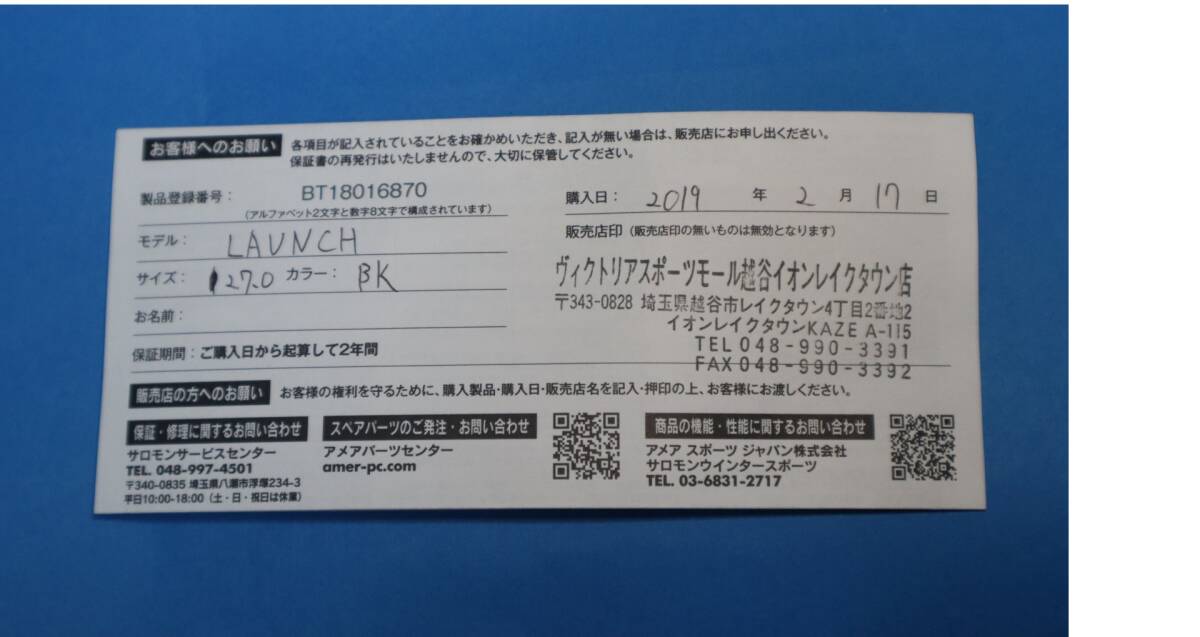 お客様へのお願い
各項目が記入されていることをお確かめいただき、記入が無い場合は、販売店にお申し出ください。
保証書の再発行はいたしませんので、大切に保管してください。
製品登録番号： BT18016870
（アルファベット2文字と数字8文字で構成されています）
モデル： LAUNCH
サイズ： 27.0 カラー： BK
お名前：
保証期間：ご購入日から起算して2年間
購入日： 2019 年 2 月 17 日
販売店印（販売店印の無いものは無効となります）
ヴィクトリアスポーツモール越谷イオンレイクタウン店
〒343-0828 埼玉県越谷市レイクタウン4丁目2番地2
イオンレイクタウンKAZE A-115
TEL 048-990-3391
FAX 048-990-3392
販売店の方へのお願い
お客様の権利を守るために、購入製品・購入日・販売店名を記入・押印の上、お客様にお渡しください。
保証・修理に関するお問い合わせ
サロモンサービスセンター
TEL. 048-997-4501
〒340-0835 埼玉県八潮市浮塚234-3
平日10:00-18:00（土・日・祝日は休業）
スペアパーツのご発注・お問い合わせ
アメアパーツセンター
amer-pc.com
商品の機能・性能に関するお問い合わせ
アメア スポーツ ジャパン株式会社
サロモンウインタースポーツ
TEL. 03-6831-2717